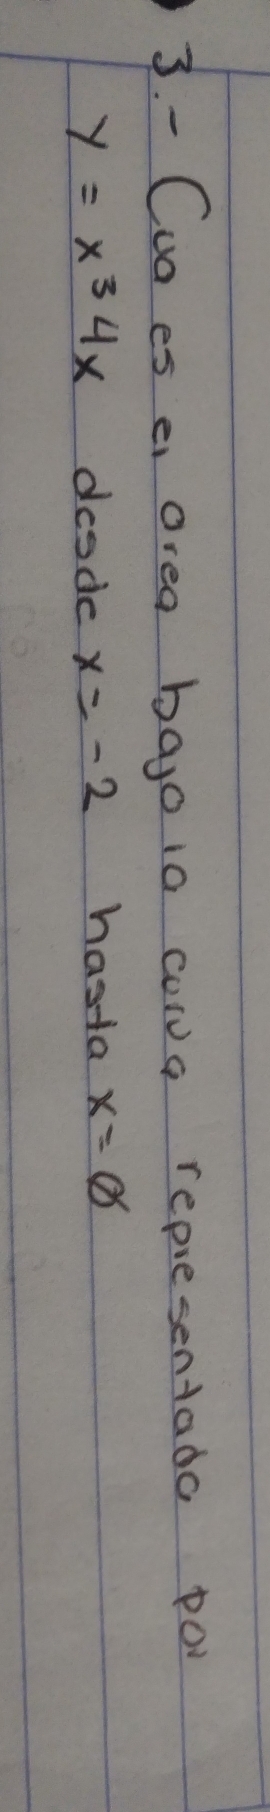 3.- Cua es el area bajo la curva representada por
y = x³4x desde x = -2 hasta x = 0